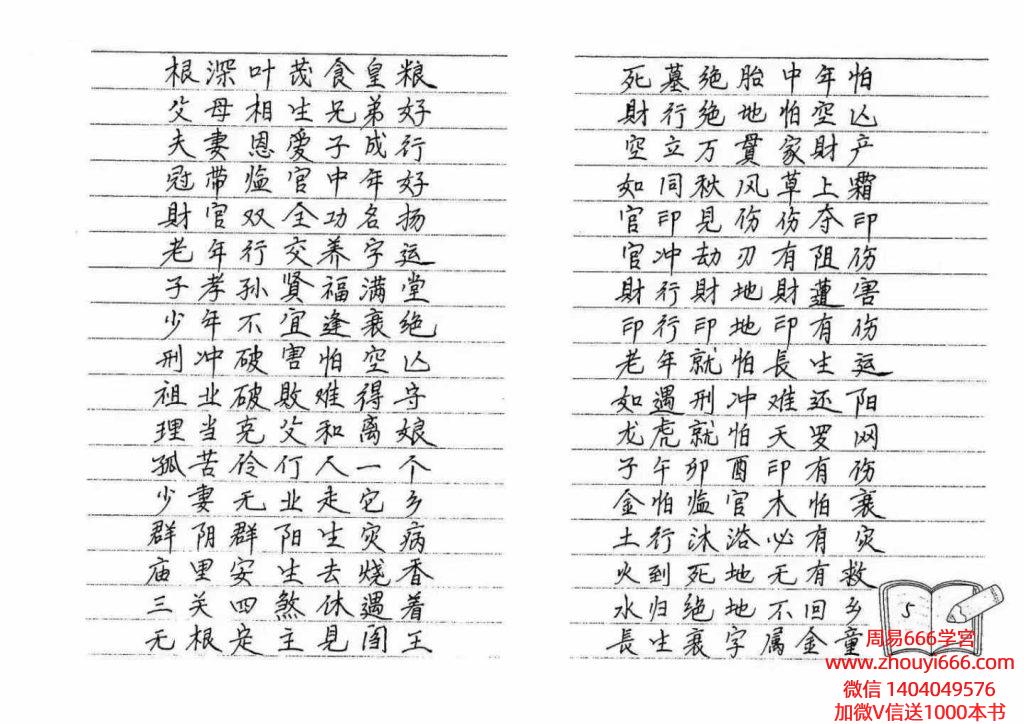 根深叶茂食皇粮
父母相生兄弟好
夫妻恩爱子成行
冠带临官中年好
財官双全功名扬
老年行交养字运
子孝孙贤福满堂
少年不宜逢衰绝
刑冲破害怕空亡
祖业破敗难得守
理当克父和离娘
孤苦伶仃人一个
少妻无业走它乡
群阴群阳生灾病
庙里安生去烧香
三关四煞休遇着
无根定主見阎王
死墓绝胎中年怕
財行绝地怕空亡
空立万貫家財产
如同秋风草上霜
官印見伤伤夺印
官冲劫刃有阻伤
財行財地財遭害
印行印地印有伤
老年就怕長生运
如遇刑冲难还阳
龙虎就怕天罗网
子午卯酉印有伤
金怕临官木怕衰
土行沐浴必有灾
火到死地无有救
水归绝地不回乡
長生衰字属金童
5
周易666学宫
www.zhouyi666.com
微信 1404049576
加微V信送1000本书